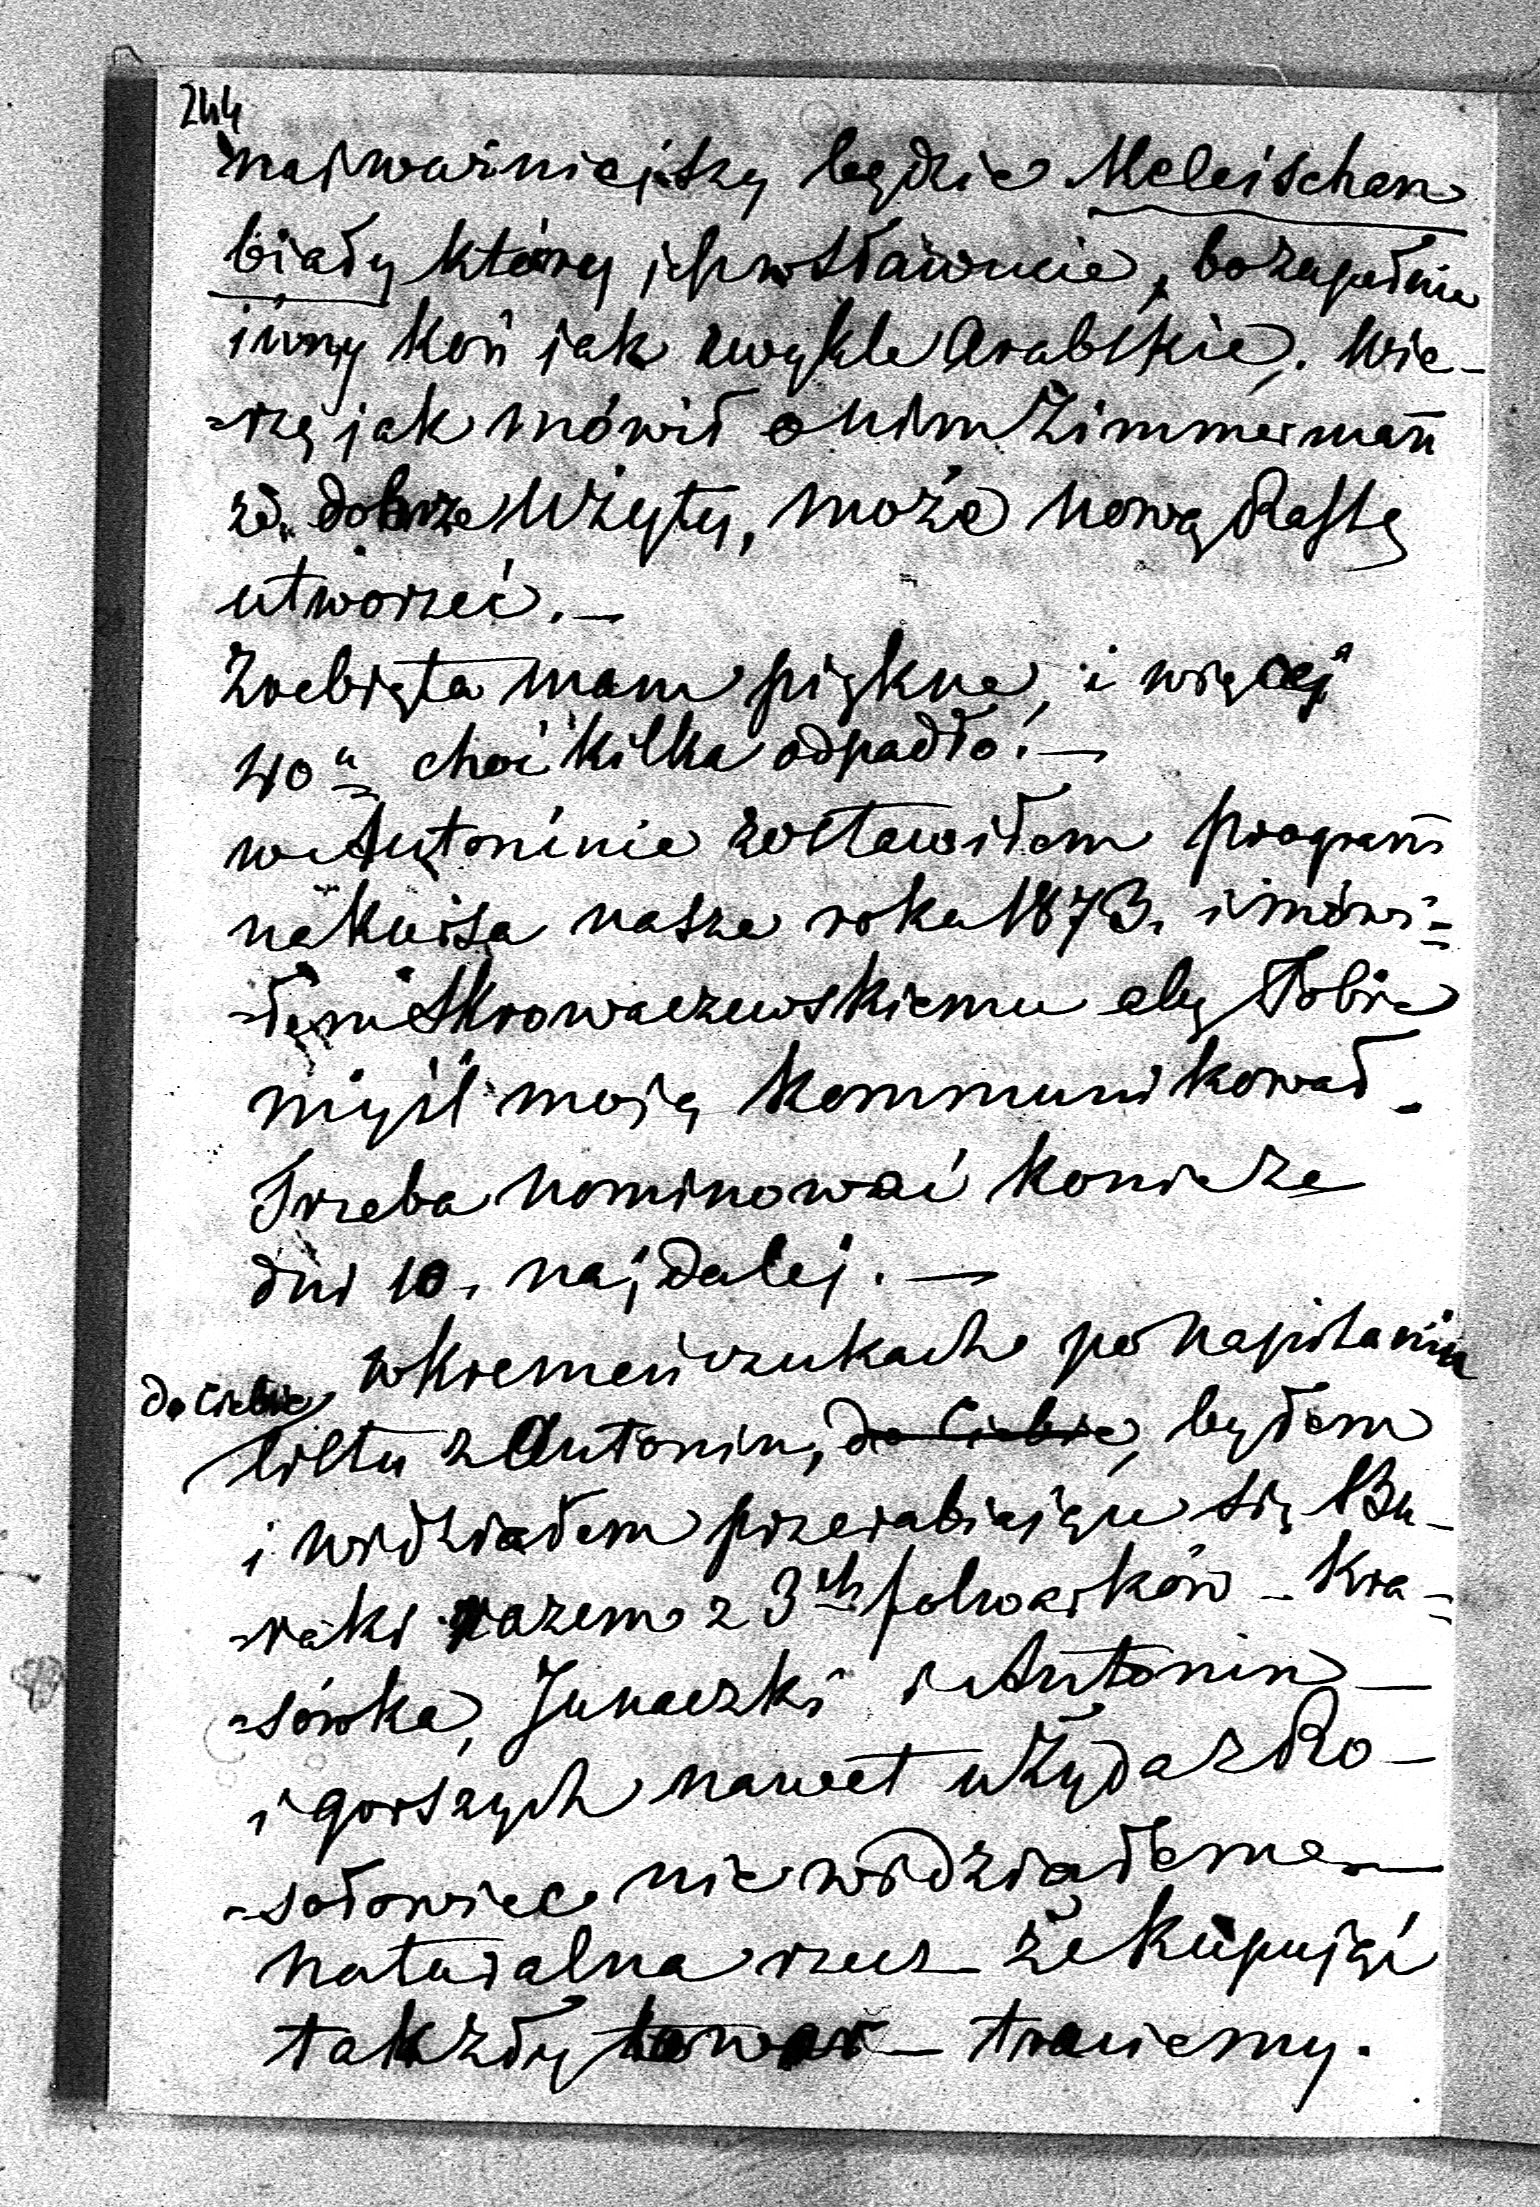 244
najważniejszy będzie Meleischan
biały który jest w Sławucie, bo zupełnie
inny koń jak zwykle Arabskie. Wie-
-rzę jak mówił o nim Zimmerman
że dobrze użyty, może nową Rassę
utworzeć. —
Zrebięta mam piękne, i więcej
40u choć kilka odpadło. —
w Antoninie zostawiłem program
na kursa nasze roku 1873. i mówi=
-łem Skrowaczewskiemu aby Tobie
myśl moją kommunikował.
Trzeba nominować konie za
dni 10. najdalej. —
w Kremeńczukach po napisaniu
do Ciebie
listu z Antonin, do Ciebie, byłem
i widziałem przerabiające się Bu-
-raki razem z 3ch folwarków – Kra=
-sówka, Junaczki i Antonin —
i gorszych nawet u Żyda z Ro-
-sołowiec nie widziałem —
naturalna rzecz że kupując
tak zły towar – traciemy.